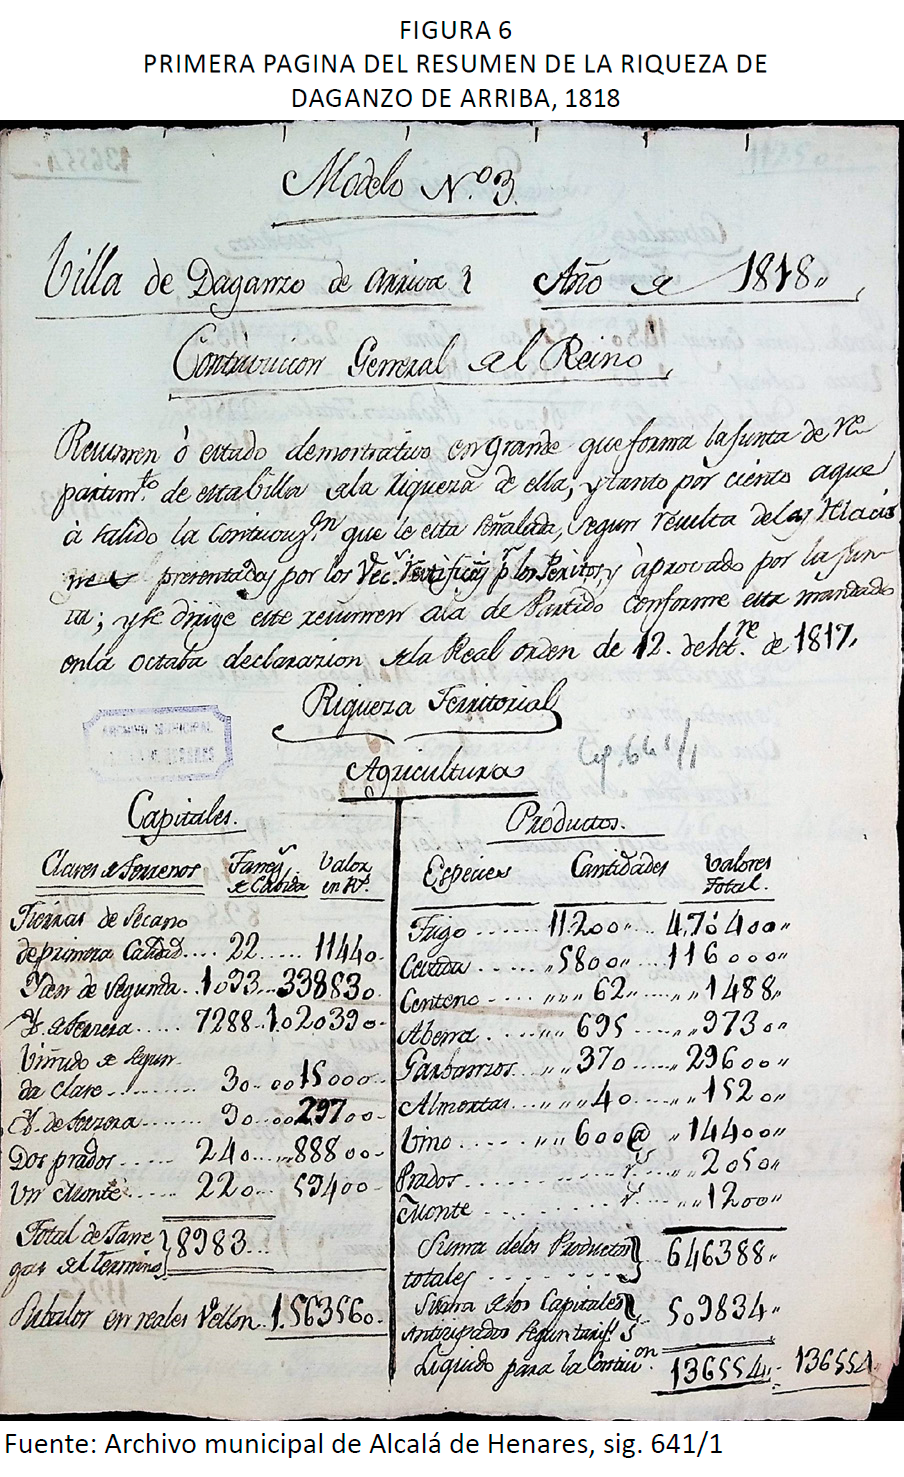 FIGURA 6
PRIMERA PAGINA DEL RESUMEN DE LA RIQUEZA DE
DAGANZO DE ARRIBA, 1818
Modelo Nº. 3.
Villa de Daganzo de Arriva Año de 1818„
Contribucion General del Reino,
Resumen ò estado demostrativo en grande que forma la Junta de re
partim.to de esta Villa de la riqueza de ella, y tanto por ciento aque
à salido la que le esta señalada, segun resulta de las relacio
presentadas por los Vec.s por los Peritos, y àprovado por la Jun
ta; y se dirije este resumen ala de Partido conforme esta mandado
en la octaba declarazion de la Real orden de 12. de Set.re de 1817,
Riqueza Territorial
ARCHIVO MUNICIPAL
Leg. 641/1
Agricultura
Capitales.
Clases de Terrenos Faneg.s de Cabida Valor en R.s
Tierras de Secano
de primera Calidad.... 22..... 11440.
Yden de Segunda.. 1.093... 338830.
Yd. de Terzera..... 7288.. 1.020390.
Viñedo de Segun
da clase......... 30.. 15000.
Yd. de Terzera.... 90... 29700.
Dos prados..... 240.. 88800.
Un Monte...... 220. 59400.
Total de Fane
gas del Termino } 8983...
Su balor en reales Vellon.. 1.563560.
Productos.
Especies Cantidades Valores Total.
Trigo...... 11.200„.... 470400„
Cevada...... „5800„... 116000„
Centeno.... „„„62„.... „„1488„
Abena...... „„695..... „„9730„
Garbanzos.. „„370..... „29600„
Almortas... „„„40..... „„1520„
Vino...... „„600@ „14400„
Prados.......... „„2050„
Monte......... „„1200„
Suma de los Productos
totales......... } 646388„
Suma de los Capitales
Anticipados segun } 509834„
Liquido para la Contribu.on. 136554„ 136554
Fuente: Archivo municipal de Alcalá de Henares, sig. 641/1